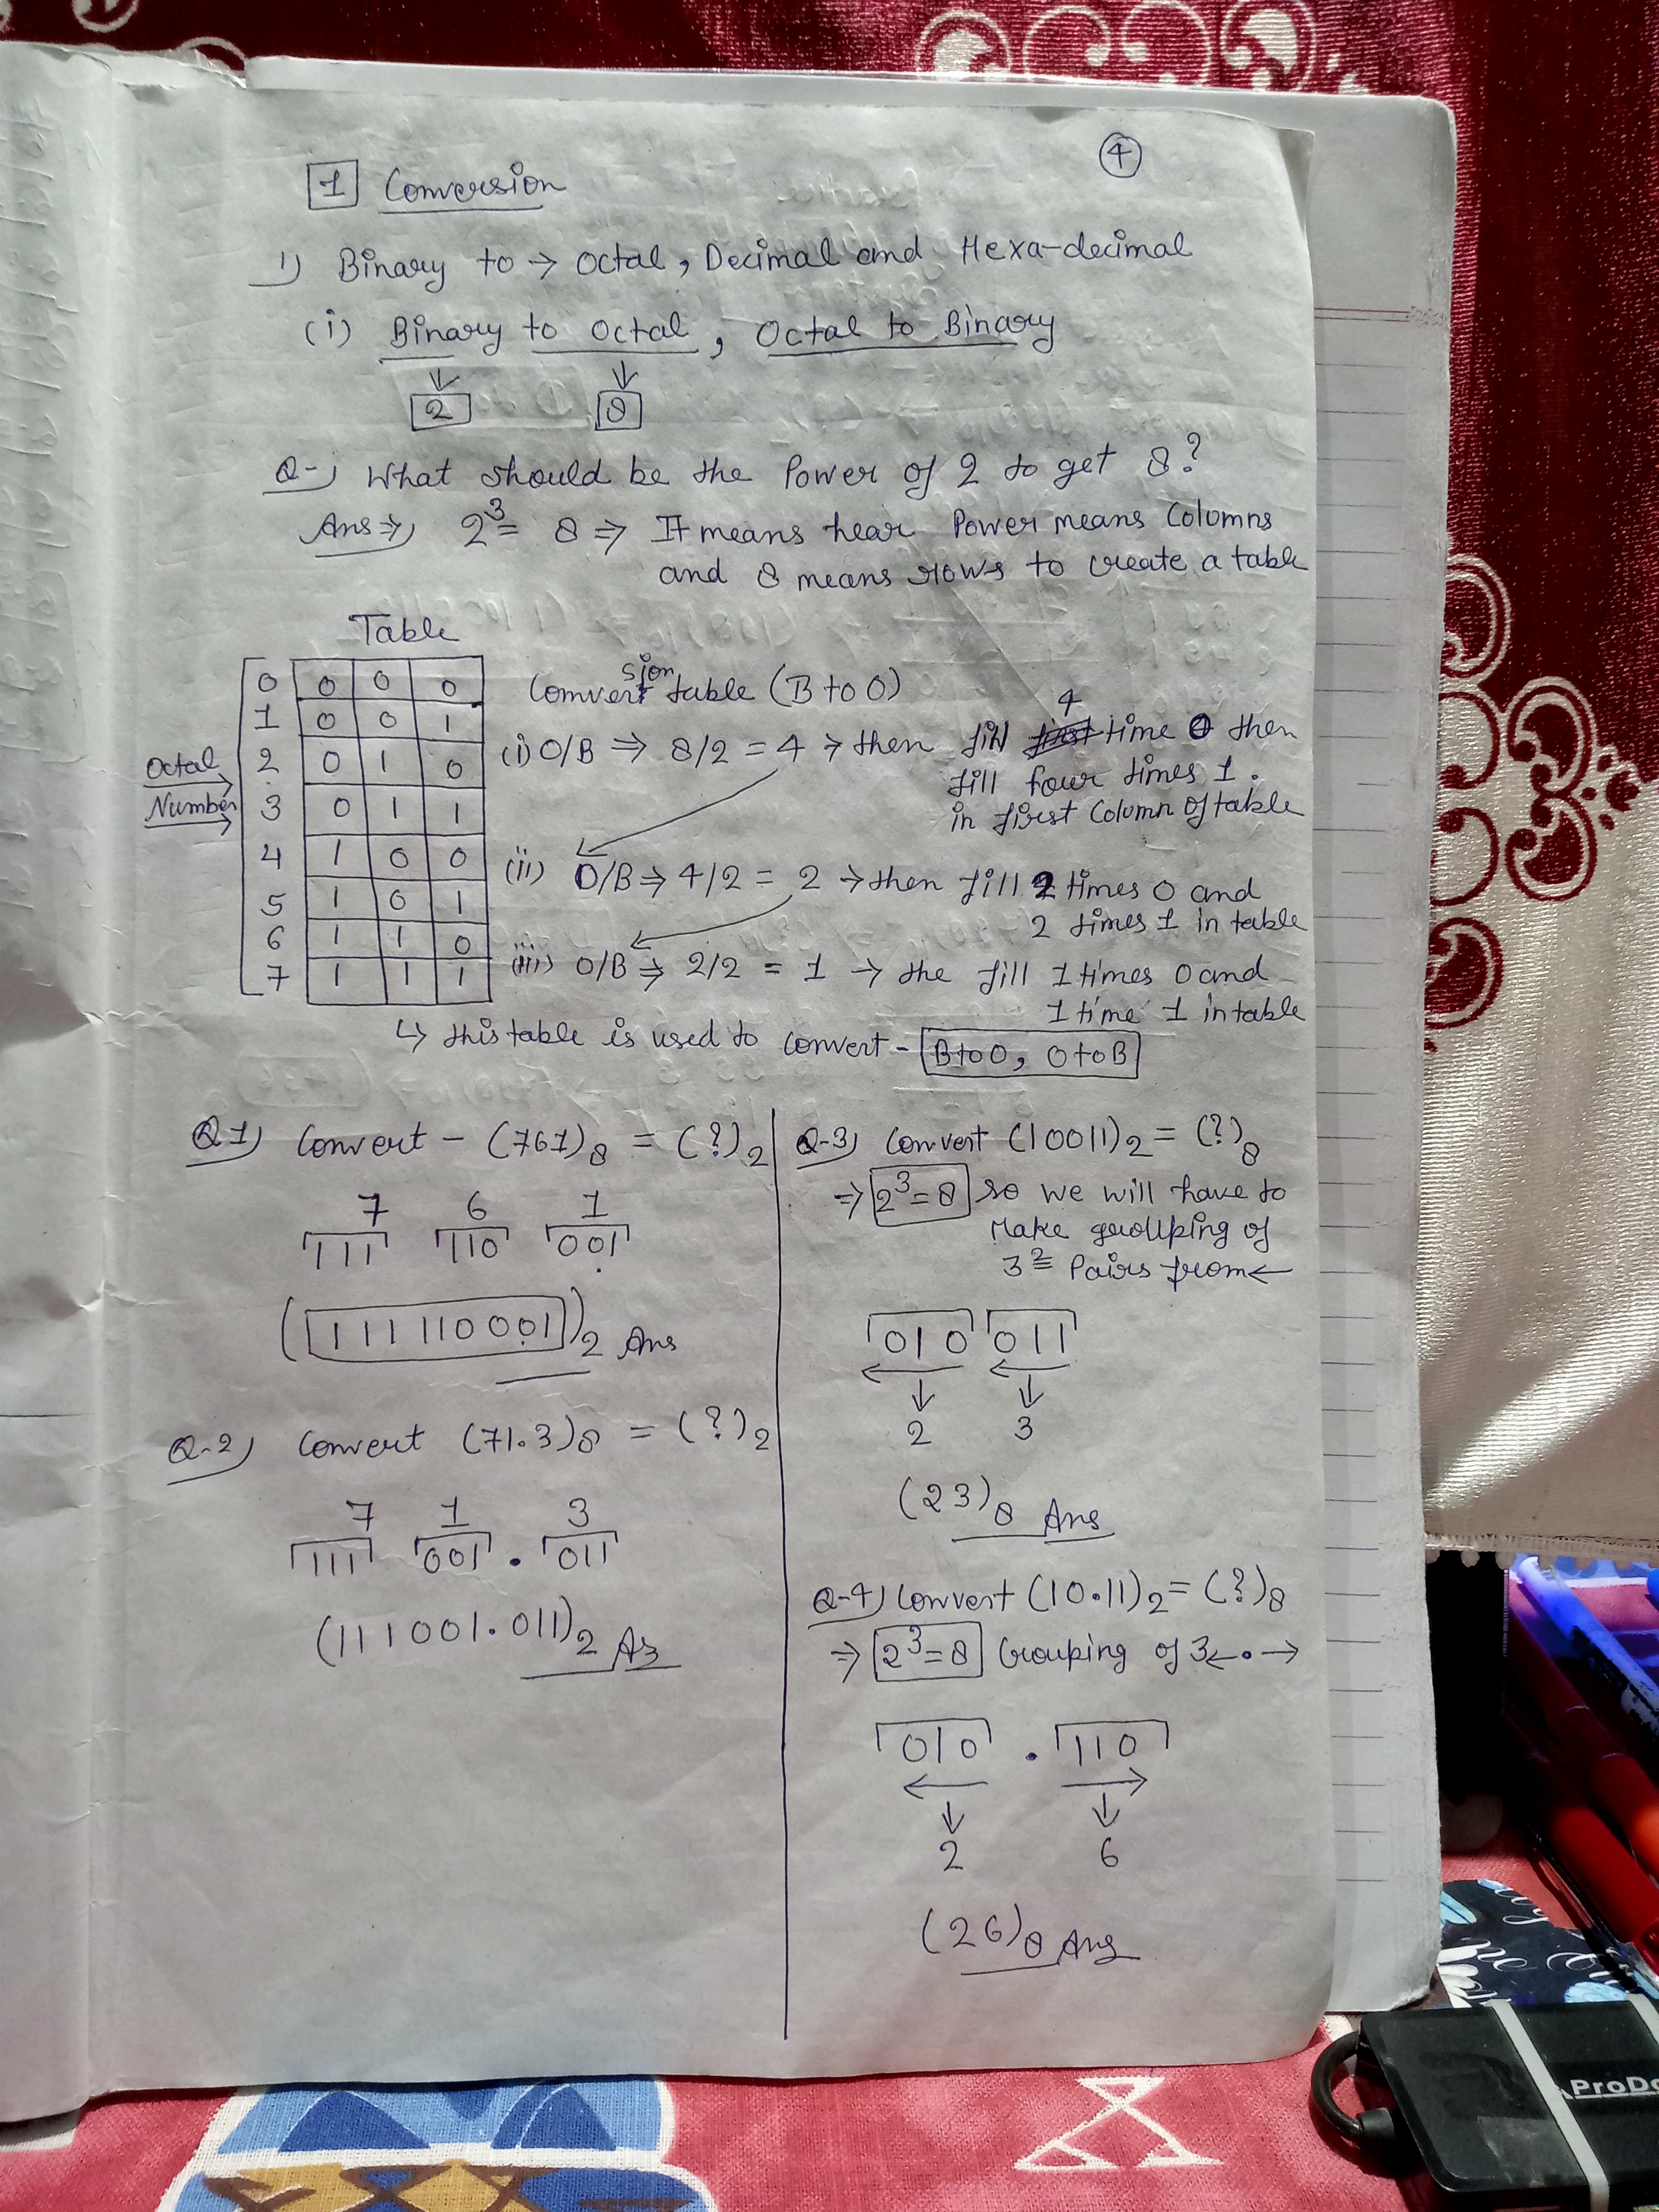 4
1 Conversion
1) Binary to → Octal, Decimal and Hexa-decimal
(i) Binary to Octal, Octal to Binary
2 8
Q-) What should be the Power of 2 to get 8?
Ans ⇒) 2³ = 8 ⇒ It means hear Power means Columns
and 8 means rows to create a table
Table
Octal
Number
0 0 0 0
1 0 0 1
2 0 1 0
3 0 1 1
4 1 0 0
5 1 0 1
6 1 1 0
7 1 1 1
Conversion table (B to O)
(i) O/B ⇒ 8/2 = 4 → then fill 4 time 0 then
fill four times 1.
in first Column of table
(ii) O/B ⇒ 4/2 = 2 → then fill 2 times 0 and
2 times 1 in table
(iii) O/B ⇒ 2/2 = 1 → the fill 1 times 0 and
1 time 1 in table
↳ this table is used to convert - B to O, O to B
Q1) Convert - (761)₈ = (?)₂
7 6 1
111 110 001
(111110001)₂ Ans
Q-2) Convert (71.3)₈ = (?)₂
7 1 3
111 001 . 011
(111001.011)₂ As
Q-3) Convert (10011)₂ = (?)₈
⇒ 2³ = 8 so we will have to
Make grouping of
3 Pairs from ←
010 011
2 3
(23)₈ Ans
Q-4) Convert (10.11)₂ = (?)₈
⇒ 2³ = 8 Grouping of 3 ← . →
010 . 110
2 6
(26)₈ Ans